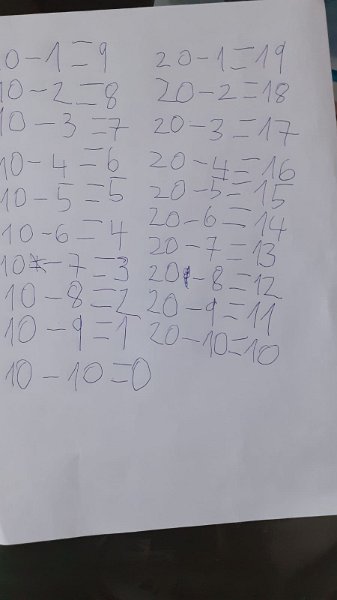 0-1=9
10-2=8
10-3=7
10-4=6
10-5=5
10-6=4
10-7=3
10-8=2
10-9=1
10-10=0
20-1=19
20-2=18
20-3=17
20-4=16
20-5=15
20-6=14
20-7=13
20-8=12
20-9=11
20-10=10